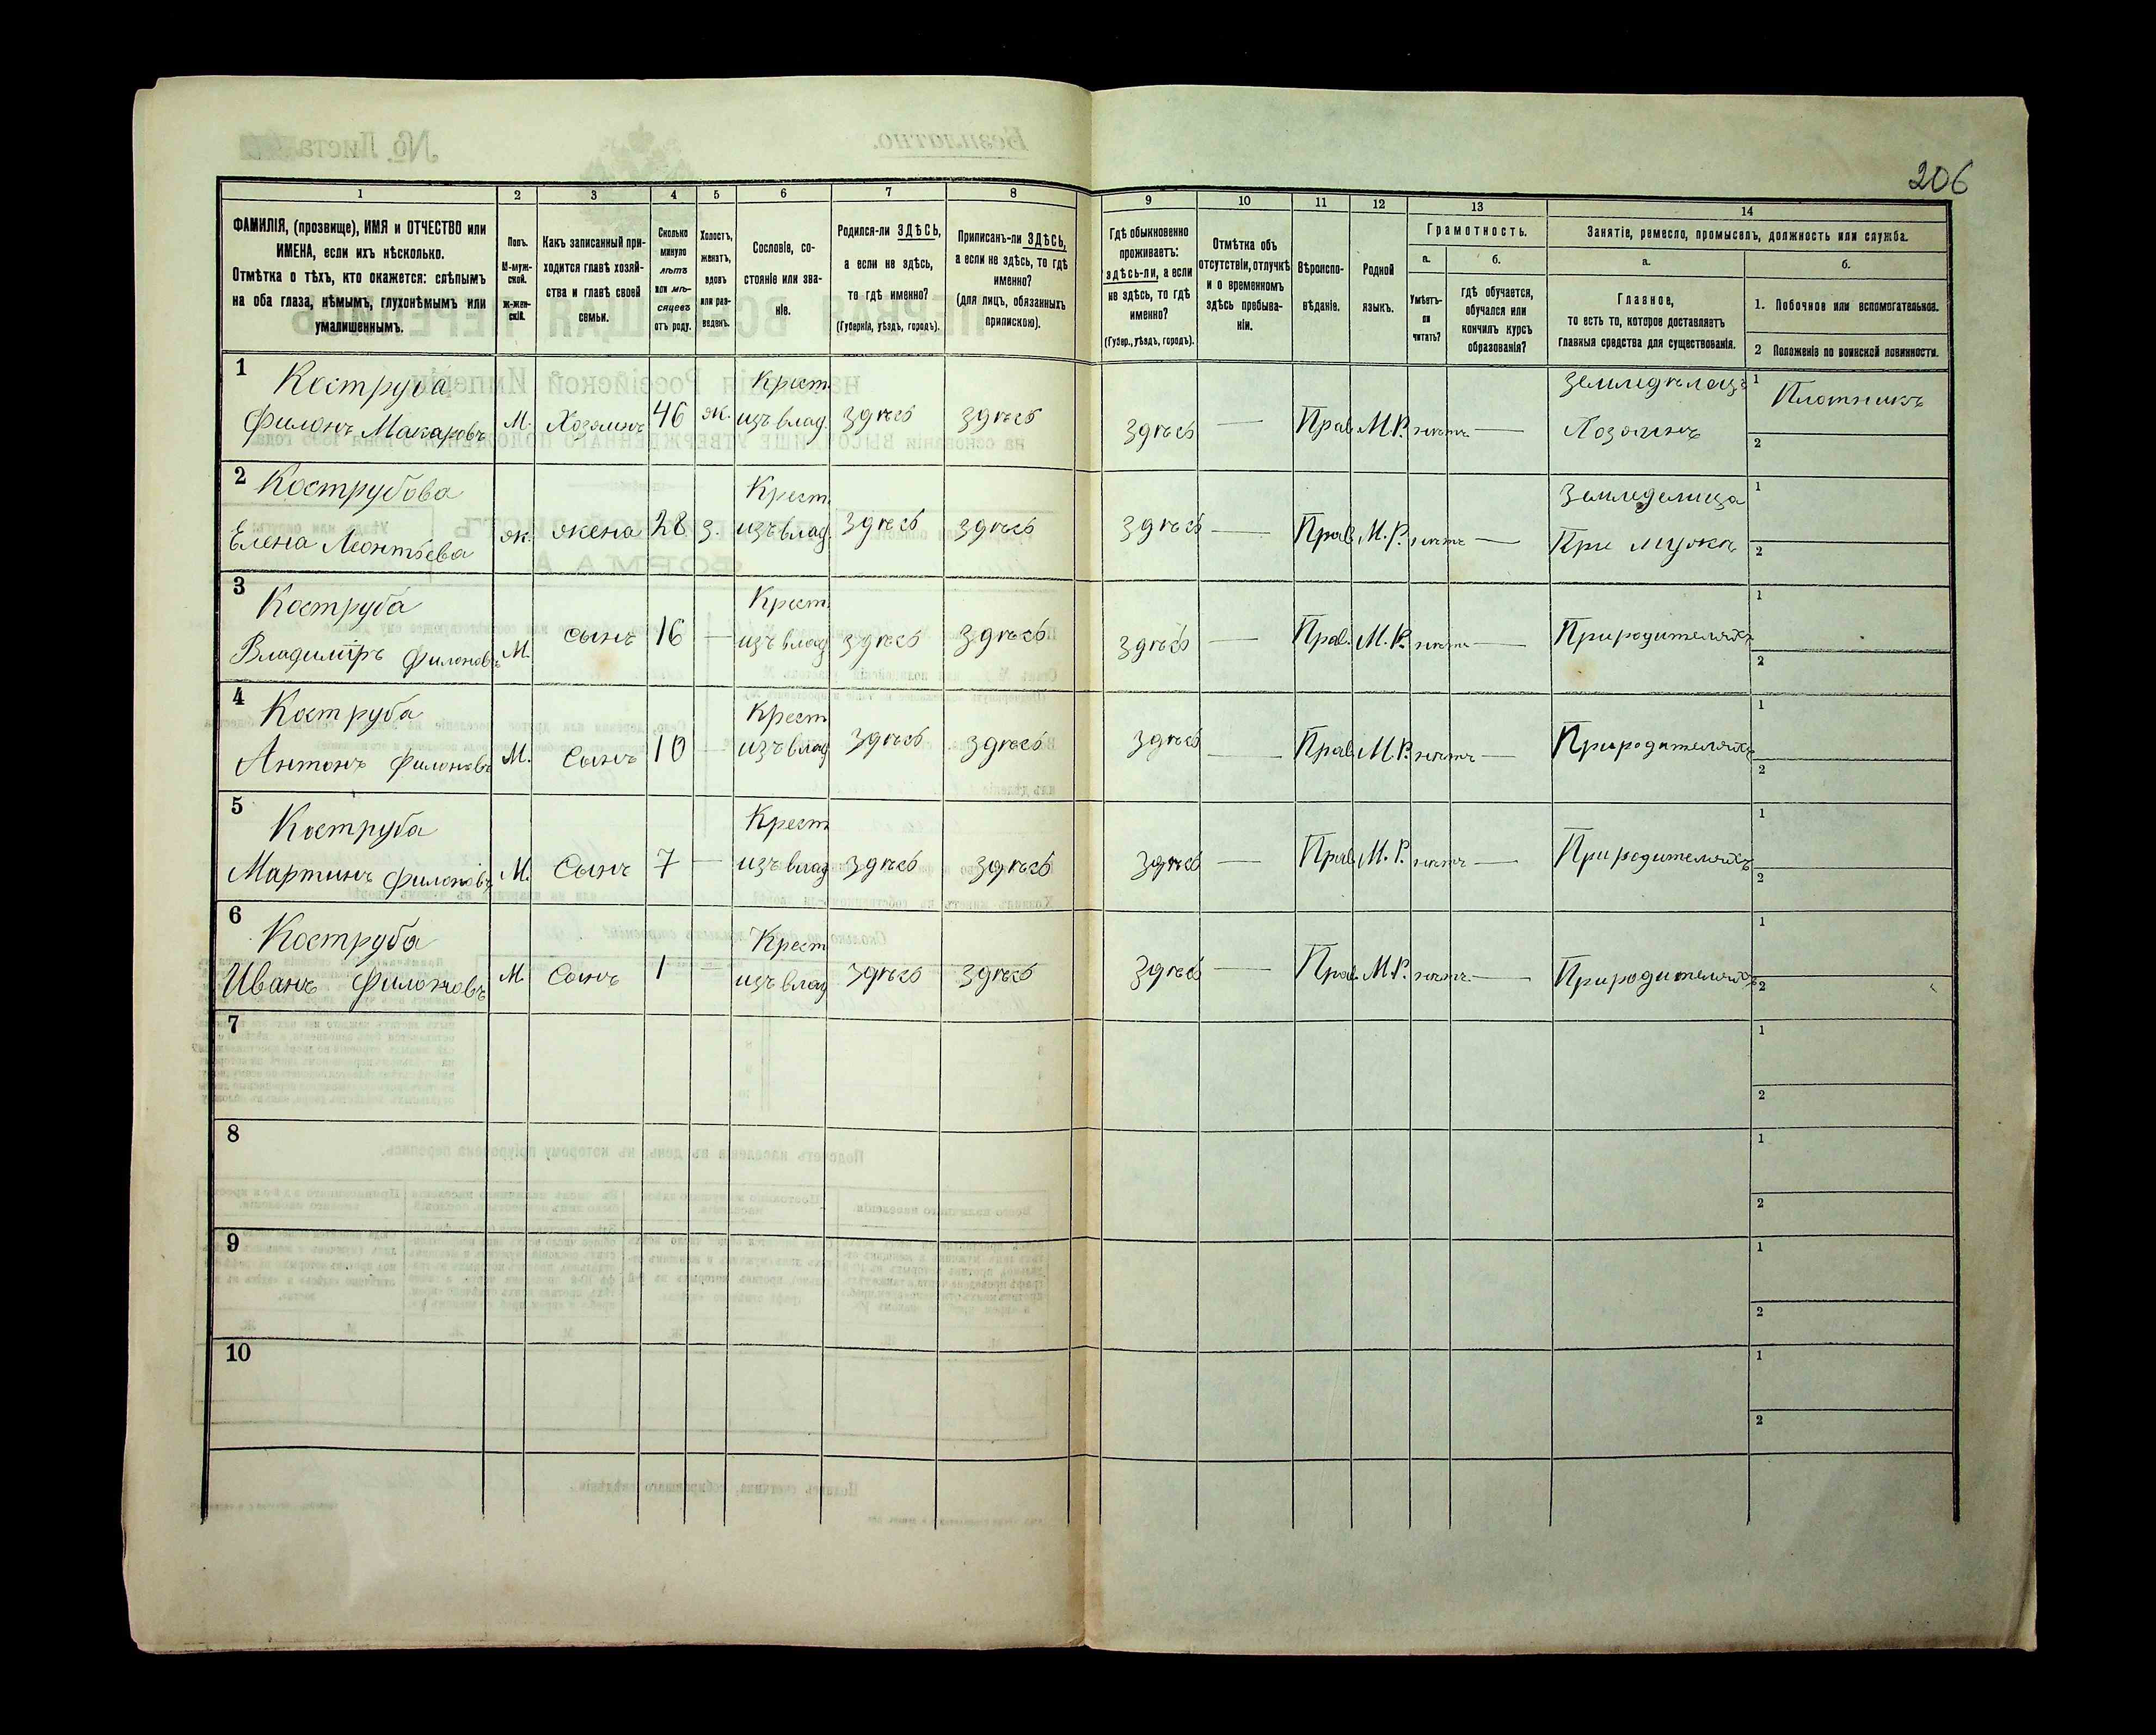 206
1 2 3 4 5 6 7 8 9 10 11 12 13 14
ФАМИЛІЯ, (прозвище), ИМЯ и ОТЧЕСТВО или
ИМЕНА, если ихъ нѣсколько.
Отмѣтка о тѣхъ, кто окажется: слѣпымъ
на оба глаза, нѣмымъ, глухонѣмымъ или
умалишеннымъ.
Полъ.
М-муж-
ской.
Ж-жен-
скій.
Какъ записанный при-
ходится главѣ хозяй-
ства и главѣ своей
семьи.
Сколько
минуло
лѣтъ
или мѣ-
сяцевъ
отъ роду.
Холостъ,
женатъ,
вдовъ
или раз-
веденъ.
Сословіе, со-
стояніе или зва-
ніе.
Родился-ли ЗДѢСЬ,
а если не здѣсь,
то гдѣ именно?
(Губернія, уѣздъ, городъ).
Приписанъ-ли ЗДѢСЬ,
а если не здѣсь, то гдѣ
именно?
(для лицъ, обязанныхъ
припискою).
Гдѣ обыкновенно
проживаетъ:
здѣсь-ли, а если
не здѣсь, то гдѣ
именно?
(Губер., уѣздъ, городъ).
Отмѣтка объ
отсутствіи, отлучкѣ
и о временномъ
здѣсь пребыва-
ніи.
Вѣроиспо-
вѣданіе.
Родной
языкъ.
Грамотность.
а.
Умѣетъ-
ли
читать?
б.
гдѣ обучается,
обучался или
кончилъ курсъ
образованія?
Занятіе, ремесло, промыселъ, должность или служба.
а.
Главное,
то есть то, которое доставляетъ
главныя средства для существованія.
б.
1. Побочное или вспомогательное.
2 Положеніе по воинской повинности.
1 Коструба Крест. Земледѣлецъ 1 Плотникъ
Филонъ Макаровъ М. Хозяинъ 46 ж. изъ влад. здѣсь здѣсь здѣсь — Прав. М.Р. нѣтъ — Хозяинъ 2
2 Кострубова Крест. Земледелица 1
Елена Леонтьева ж. жена 28 з. изъ влад. здѣсь здѣсь здѣсь — Прав. М.Р. нѣтъ — При мужѣ 2
3 Коструба Крест. 1
Владиміръ Филоновъ М. сынъ 16 — изъ влад здѣсь здѣсь здѣсь — Прав. М.Р. нѣтъ — При родителяхъ 2
4 Коструба Крест. 1
Антонъ Филоновъ М. Сынъ 10 — изъ влад здѣсь здѣсь здѣсь — Прав. М.Р. нѣтъ — При родителяхъ 2
5 Коструба Крест. 1
Мартинъ Филоновъ М. Сынъ 7 — изъ влад здѣсь здѣсь здѣсь — Прав. М.Р. нѣтъ — При родителяхъ 2
6 Коструба Крест 1
Иванъ Филоновъ М Сынъ 1 — изъ влад здѣсь здѣсь здѣсь — Прав. М.Р. нѣтъ — При родителяхъ 2
7 1
2
8 1
2
9 1
2
10 1
2